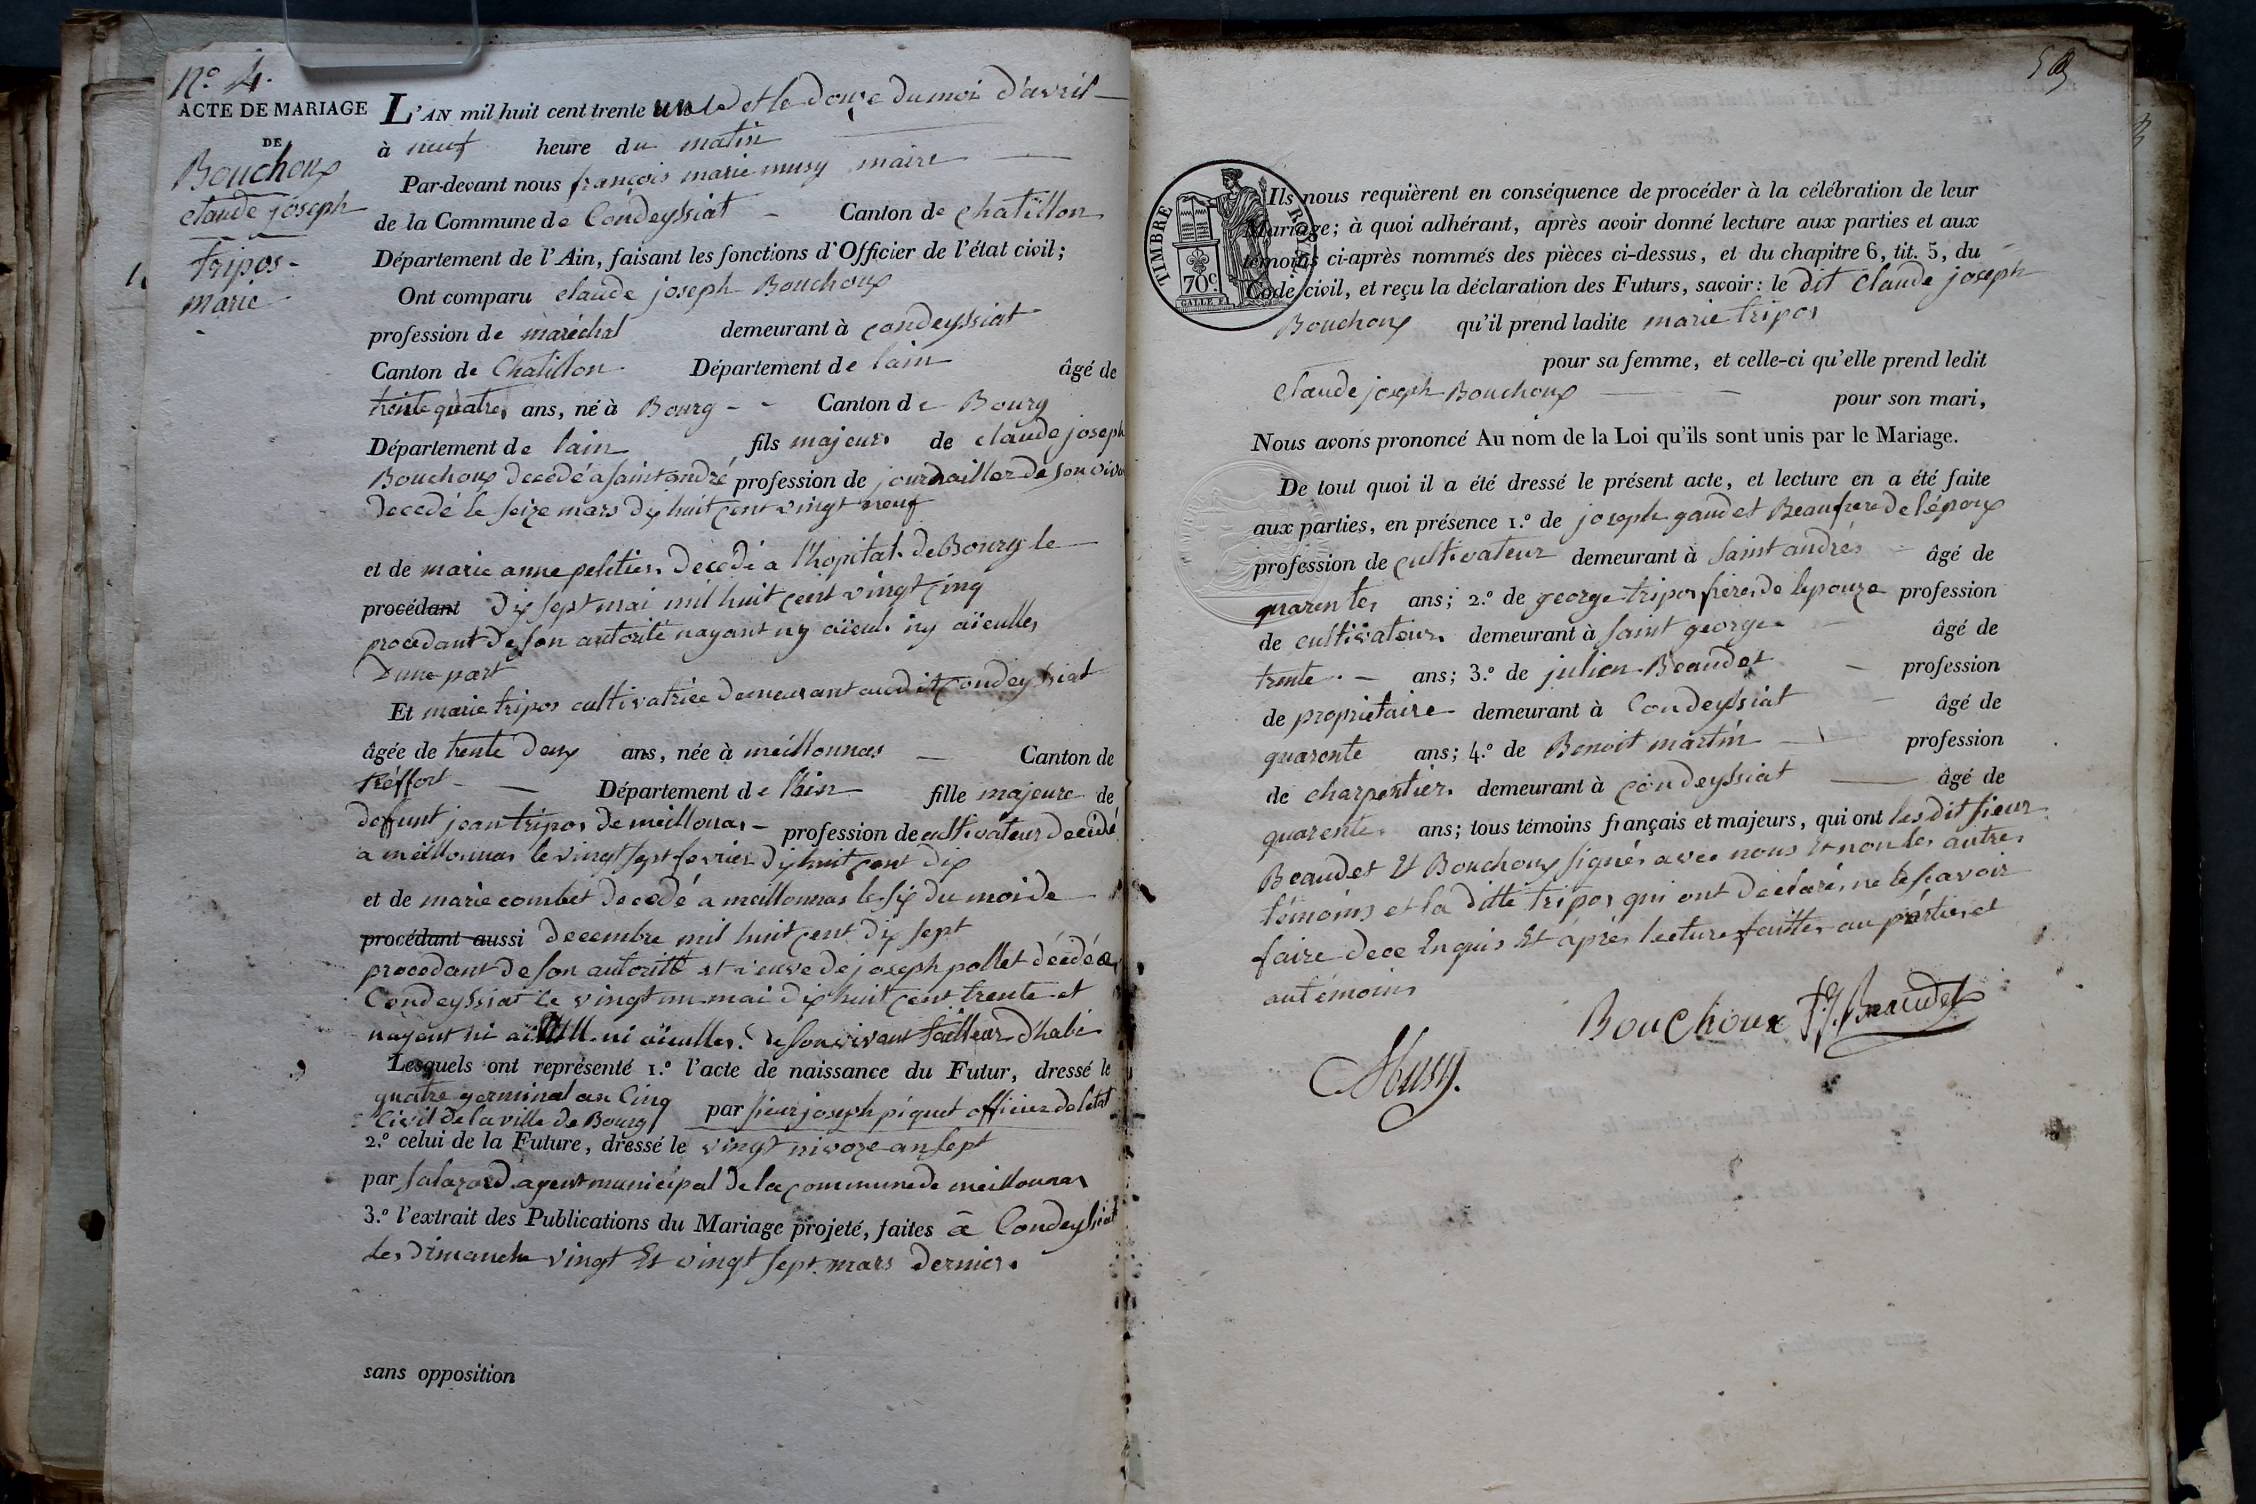 N.º 4.
ACTE DE MARIAGE
DE
Bouchoux
claude joseph
tripos
marie
L'AN mil huit cent trente un et le douze du moi d'avril
à neuf heure du matin
Par-devant nous françois marie musy maire
de la Commune de Condeyssiat Canton de chatillon
Département de l'Ain, faisant les fonctions d'Officier de l'état civil;
Ont comparu claude joseph Bouchoux
profession de maréchal demeurant à condeyssiat
Canton de Chatillon Département de lain âgé de
trente quatre ans, né à Bourg Canton de Bourg
Département de lain fils majeur de claude joseph
Bouchoux decedé a saint andré profession de journailler de son viv
decedé le seize mars dix huit cent vingt neuf
et de marie anne peletier decedé a l'hopital de Bourg le
procédant dix sept mai mil huit cent vingt cinq
procedant de son autorité nayant ny aïeul ny aïeulles
Dune part
Et marie tripos cultivatrice demeurant audit Condeyssiat
âgée de trente deux ans, née à meillonnas Canton de
tréffort Département de lain fille majeure de
deffunt jean tripos de meillonas profession de cultivateur decédé
a meillonnas le vingt sept fevrier dix huit cent dix
et de marie combet decedé a meillonnas le six du moi de
procédant aussi decembre mil huit cent dix sept
procedant de son autorité et veuve de joseph pollet décédé a
Condeyssiat le vingt un mai dix huit cent trente et
nayant ni aïeull ni aïeulles. de son vivant tailleur d'habi
Lesquels ont représenté 1.º l'acte de naissance du Futur, dressé le
quatre germinal an Cinq par sieur joseph piquet officier de letat
Civil de la ville de Bourg
2.º celui de la Future, dressé le vingt nivoze an sept
par salazard agent municipal de la commune de meillonnas
3.º l'extrait des Publications du Mariage projeté, faites à Condeyssiat
les dimanche vingt Et vingt sept mars dernier.
sans opposition
TIMBRE ROYAL
70c.
Ils nous requièrent en conséquence de procéder à la célébration de leur
Mariage; à quoi adhérant, après avoir donné lecture aux parties et aux
témoins ci-après nommés des pièces ci-dessus, et du chapitre 6, tit. 5, du
Code civil, et reçu la déclaration des Futurs, savoir: le dit Claude joseph
Bouchoux qu'il prend ladite marie tripos
pour sa femme, et celle-ci qu'elle prend ledit
Claude joseph Bouchoux pour son mari,
Nous avons prononcé Au nom de la Loi qu'ils sont unis par le Mariage.
De tout quoi il a été dressé le présent acte, et lecture en a été faite
aux parties, en présence 1.º de joseph gaudet Beaufrere de l'époux
profession de cultivateur demeurant à saint andrés âgé de
quarente ans; 2.º de george tripos frere de lepouze profession
de cultivateur demeurant à saint george âgé de
trente ans; 3.º de julien Beaudet profession
de proprietaire demeurant à Condeyssiat âgé de
quarente ans; 4.º de Benoit martin profession
de charpentier demeurant à condeyssiat âgé de
quarente ans; tous témoins français et majeurs, qui ont les dit sieur
Beaudet Et Bouchoux signés avec nous et non les autres
témoins et la ditte tripos qui ont declaré ne le savoir
faire de ce Enquis Et après lecture faittes au partie et
au témoins
Bouchoux Beaudet
Musy.